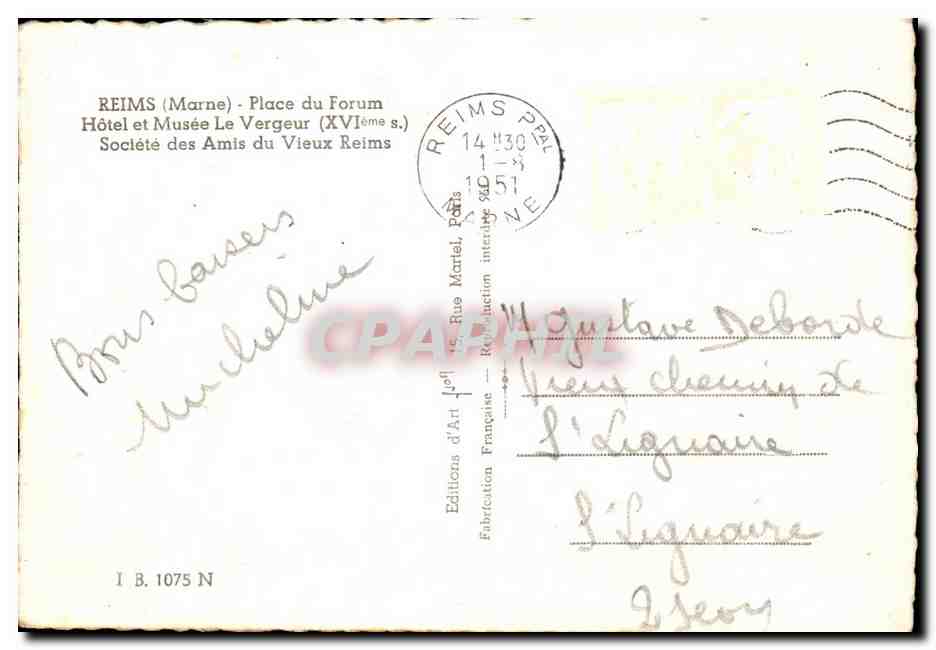 REIMS (Marne) - Place du Forum
Hôtel et Musée Le Vergeur (XVIème s.)
Société des Amis du Vieux Reims
REIMS PPAL
14H30
1-8
1951
MARNE
Bons baisers
Micheline
Editions d'Art Yvon 15, Rue Martel, Paris
Fabrication Française — Reproduction interdite
CPAPHIL
M Gustave Deborde
Vieux chemin de
St Liguaire
St Liguaire
2 Sevres
I B. 1075 N